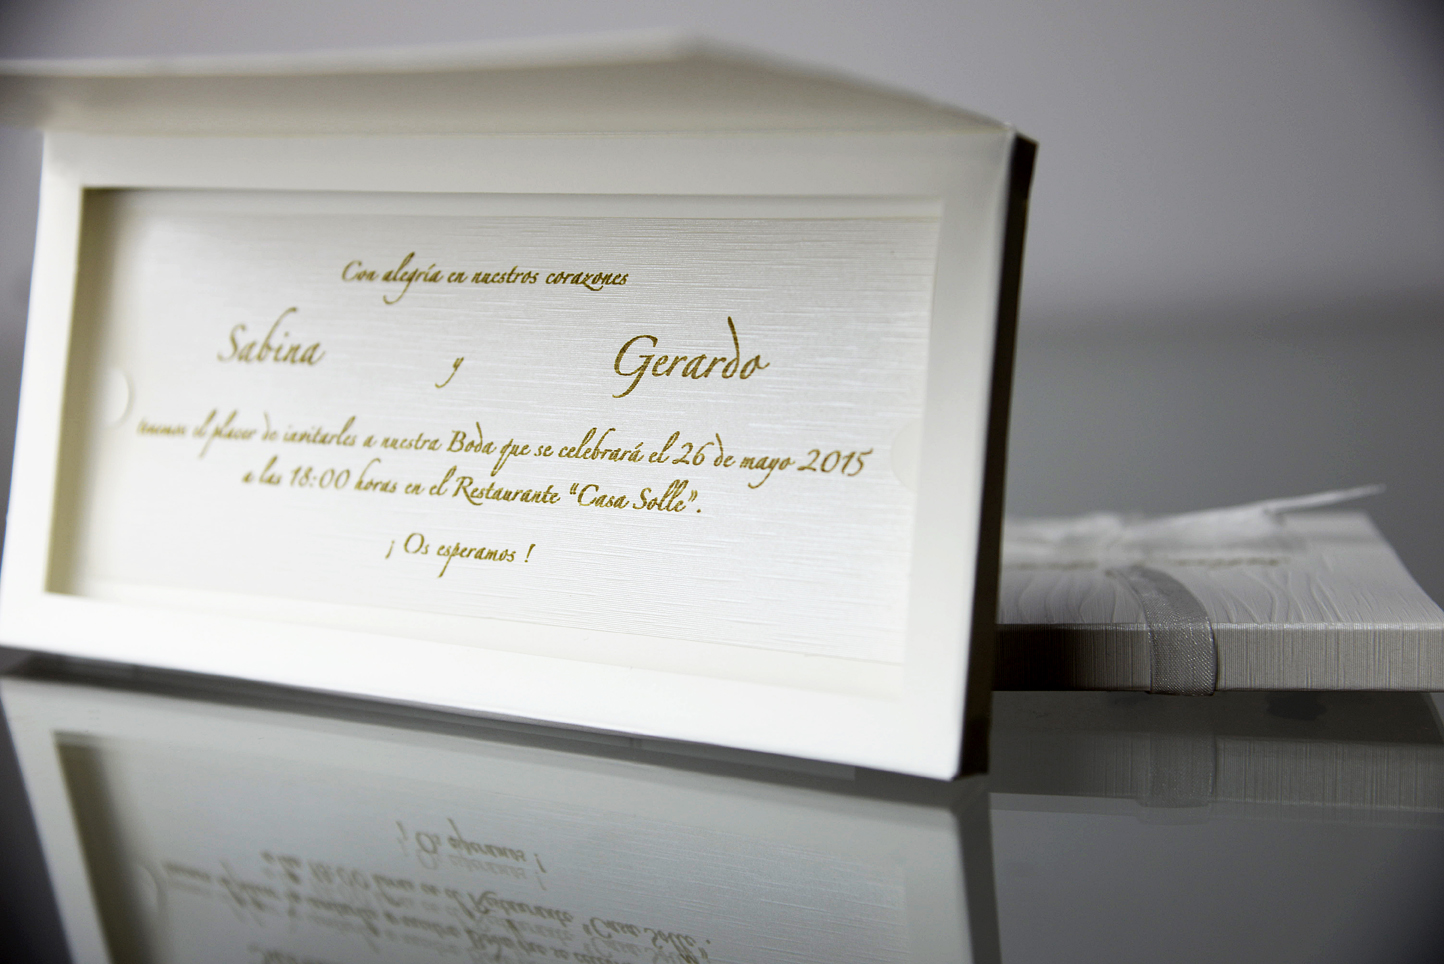 Con alegría en nuestros corazones
Sabina y Gerardo
tenemos el placer de invitarles a nuestra Boda que se celebrará el 26 de mayo 2015
a las 18:00 horas en el Restaurante “Casa Solle”.
¡ Os esperamos !